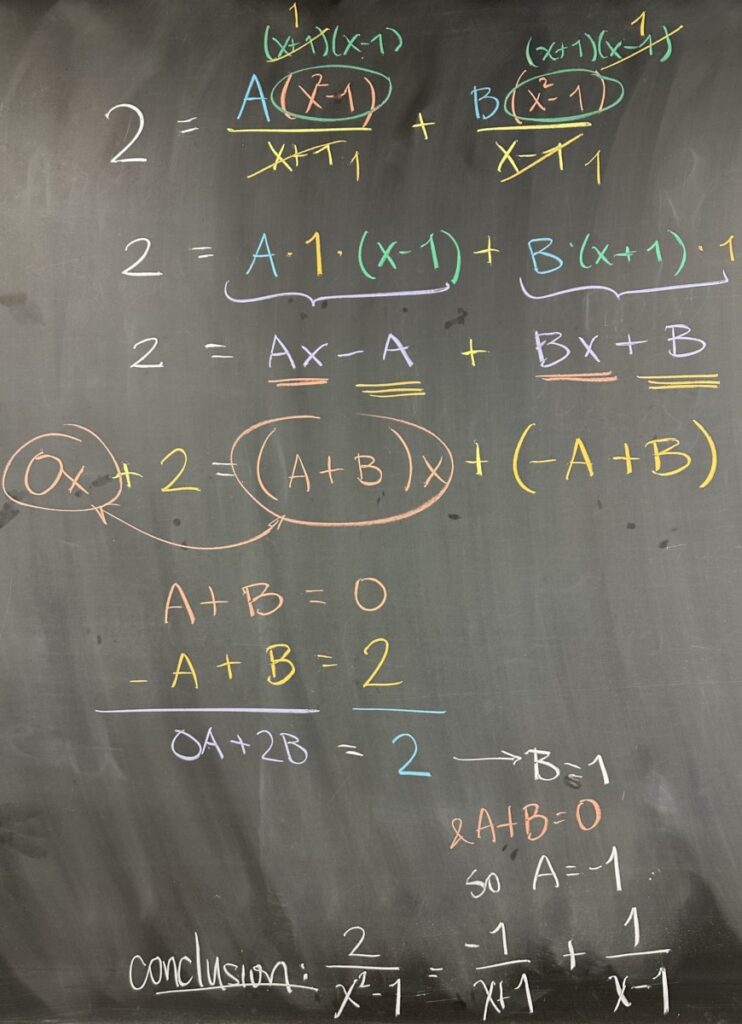 1 1
(x+1)(x-1) (x+1)(x-1)
2 = A(x²-1)/x+1 1 + B(x²-1)/x-1 1
2 = A·1·(x-1) + B·(x+1)·1
2 = Ax - A + Bx + B
0x + 2 = (A+B)x + (-A+B)
A+B = 0
-A+B = 2
0A+2B = 2 → B=1
& A+B=0
so A=-1
conclusion: 2/x²-1 = -1/x+1 + 1/x-1